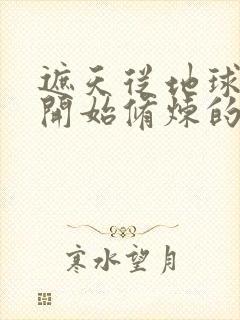 遮天從地球
開始脩煉的
寒水望月